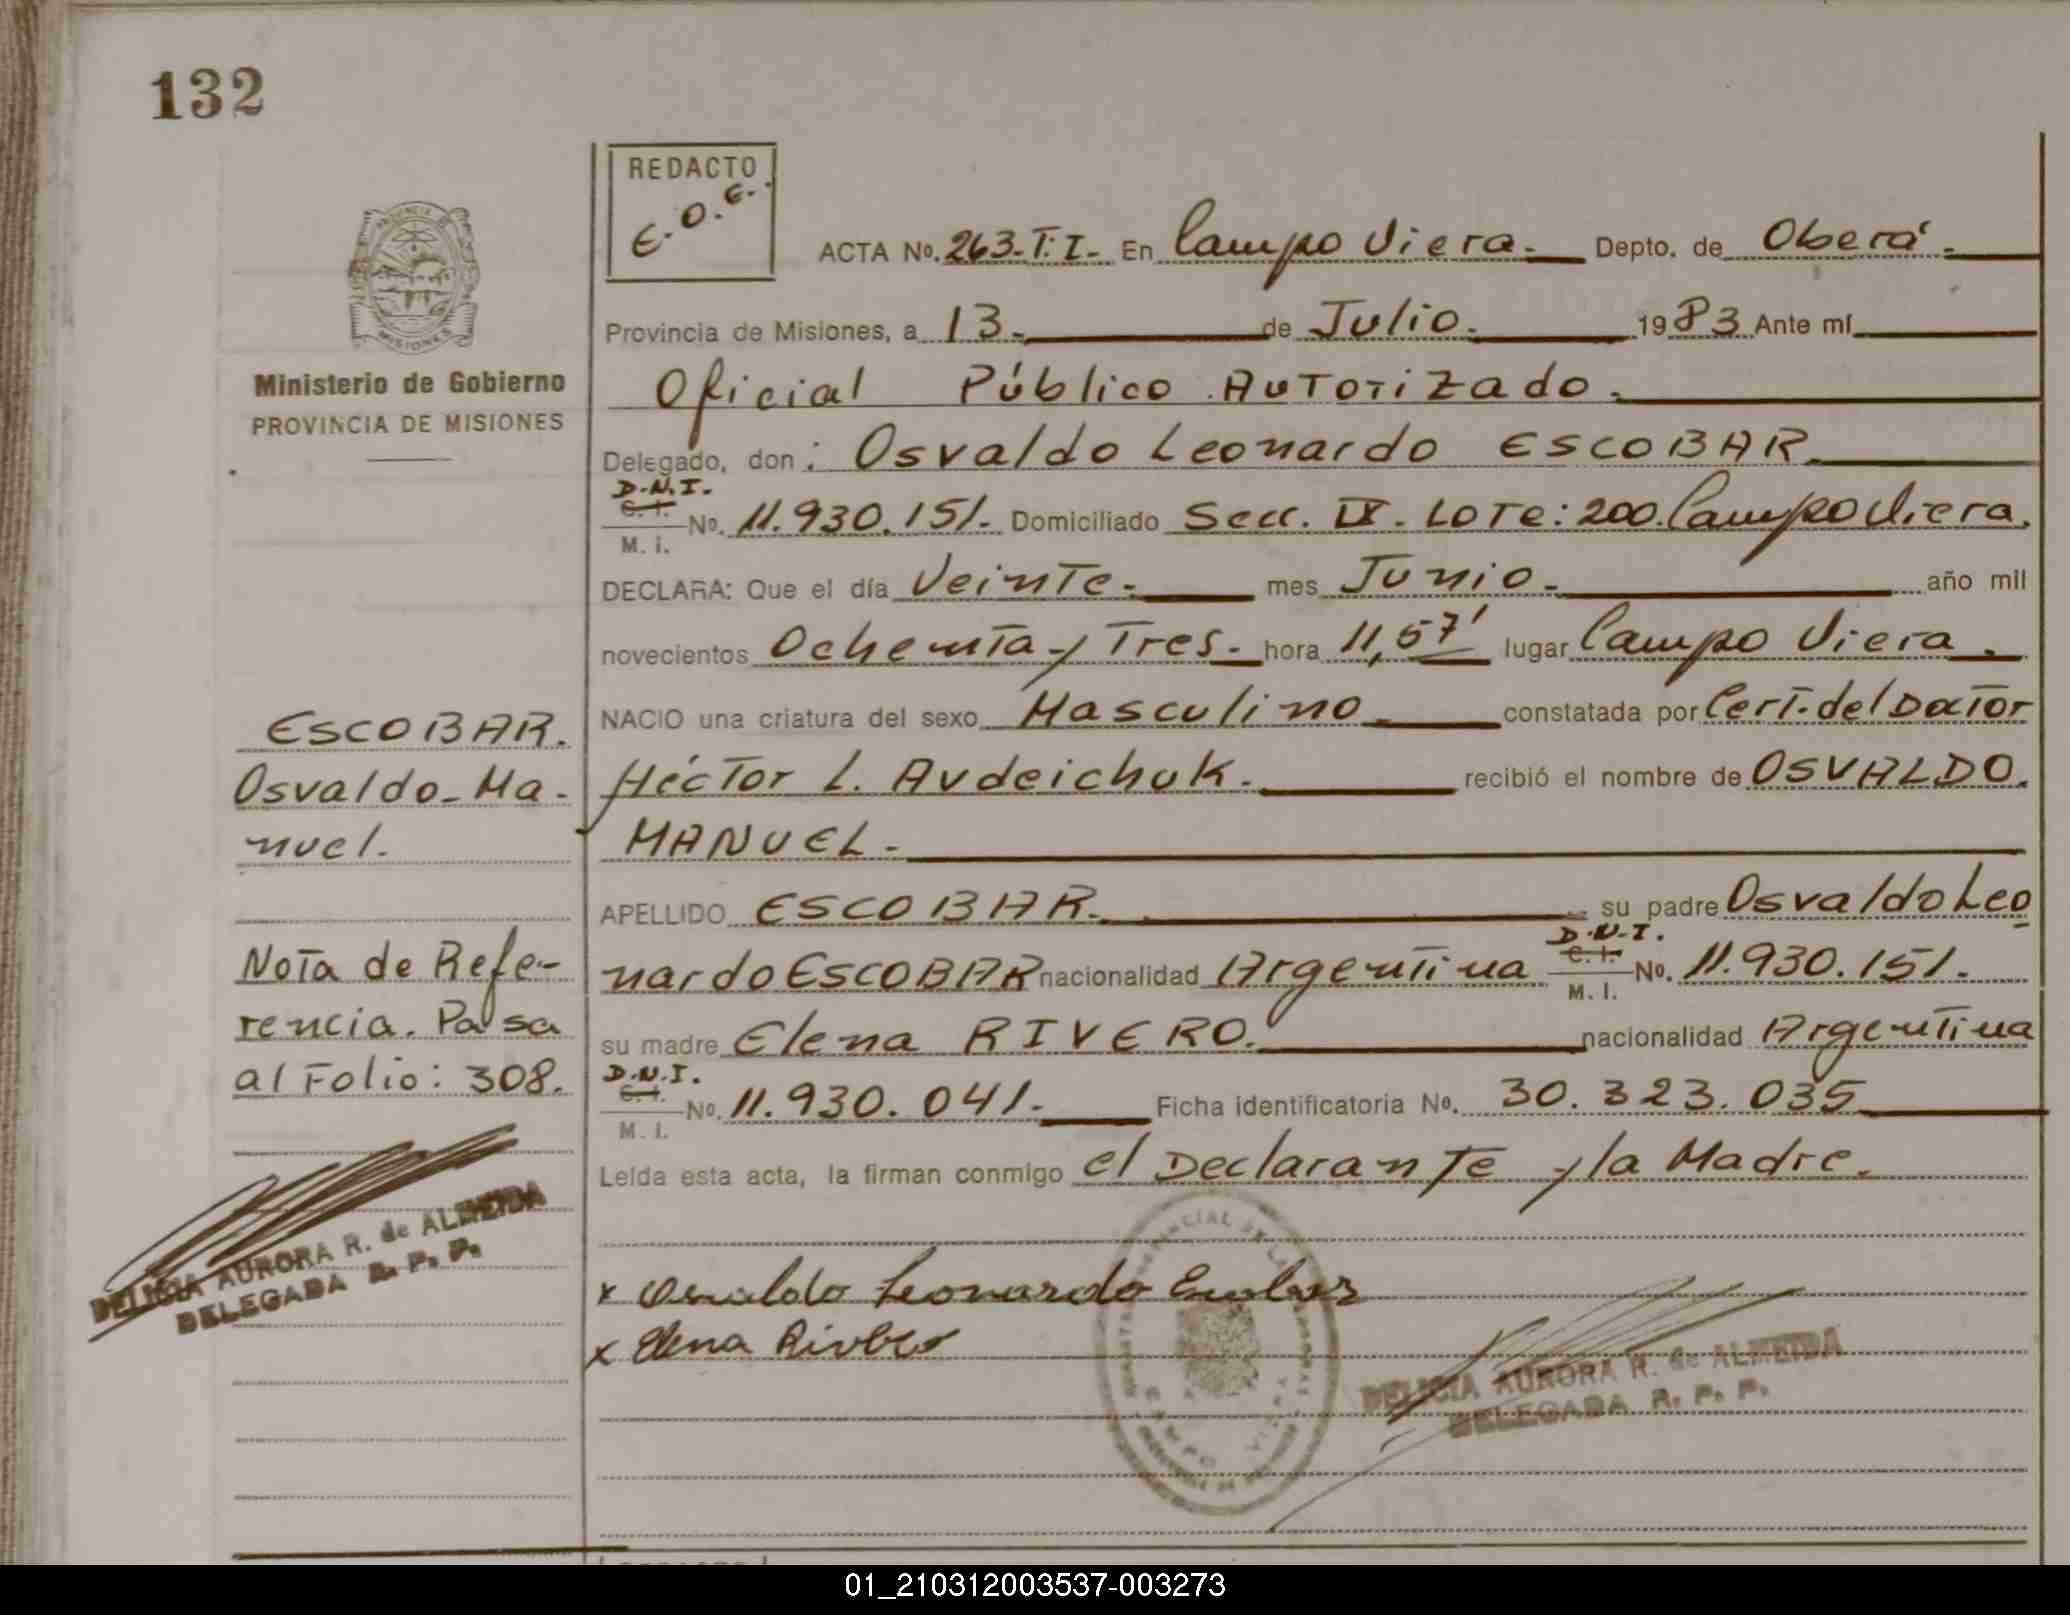 132
REDACTO
E.O.E.
ACTA No. 263-T.I- En Campo Viera. Depto. de Oberá.
Provincia de Misiones, a 13. de Julio. 1983 Ante mí
Oficial Público AUTORIZADO.
Delegado, don: Osvaldo Leonardo ESCOBAR.
D.N.I.
C.I. No. 11.930.151. Domiciliado Secc. IX. LOTE: 200. Campo Viera.
M. I.
DECLARA: Que el día Veinte. mes Junio. año mil
novecientos Ochenta y Tres. hora 11,57' lugar Campo Viera.
NACIO una criatura del sexo Masculino constatada por Cert. del Doctor
Héctor L. Avdeichuk. recibió el nombre de OSVALDO.
MANUEL.
APELLIDO ESCOBAR. su padre Osvaldo Leo
D.N.I.
nardo ESCOBAR nacionalidad Argentina C.I. No. 11.930.151.
M. I.
su madre Elena RIVERO. nacionalidad Argentina
D.N.I.
C.I. No. 11.930.041. Ficha identificatoria No. 30.323.035
M. I.
Leída esta acta, la firman conmigo el Declarante y la Madre.
x Osvaldo Leonardo Escobar
x Elena Rivero
DELICIA AURORA R. de ALMEIDA
DELEGADA R. P. P.
PROVINCIA DE
MISIONES
Ministerio de Gobierno
PROVINCIA DE MISIONES
ESCOBAR.
Osvaldo-Ma-
nuel.
Nota de Refe-
rencia. Pasa
al Folio: 308.
DELICIA AURORA R. de ALMEIDA
DELEGADA R. P. P.
01_210312003537-003273